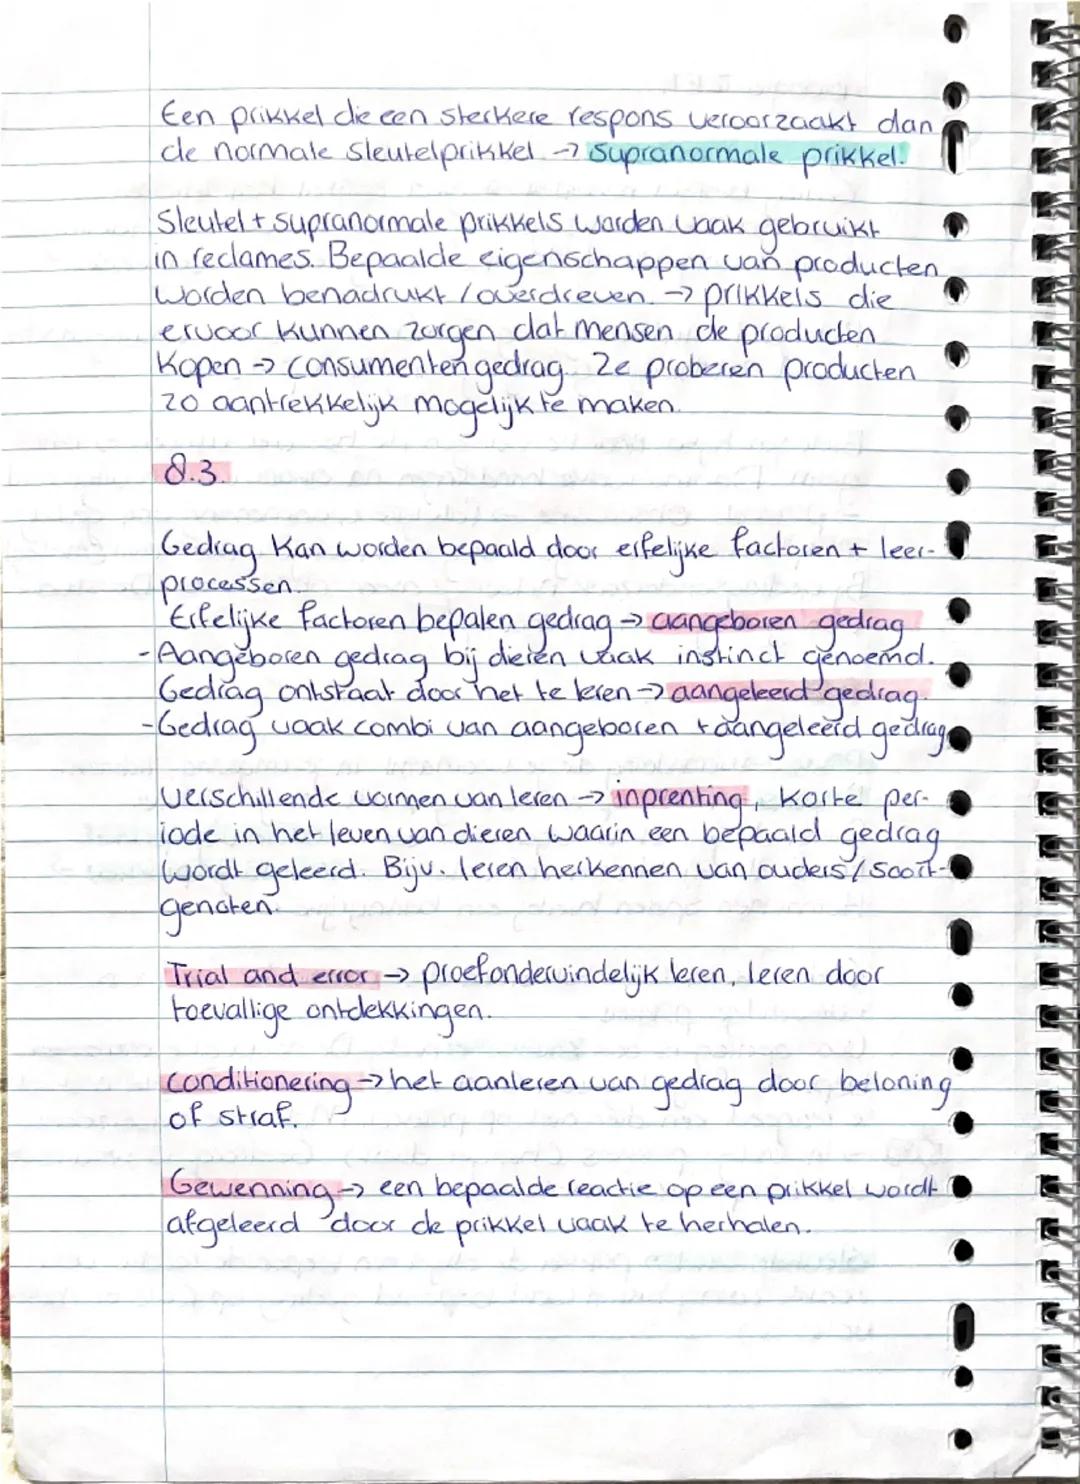 Een prikkel die een sterkere respons veroorzaakt dan
de normale sleutelprikkel → supranormale prikkel.
Sleutel + supranormale prikkels worden vaak gebruikt
in reclames. Bepaalde eigenschappen van producten
worden benadrukt / overdreven. → prikkels die
ervoor kunnen zorgen dat mensen de producten
kopen → consumenten gedrag. Ze proberen producten
zo aantrekkelijk mogelijk te maken.
8.3.
Gedrag kan worden bepaald door erfelijke factoren + leer-
processen.
Erfelijke factoren bepalen gedrag → aangeboren gedrag
- Aangeboren gedrag bij dieren vaak instinct genoemd.
Gedrag ontstaat door het te leren → aangeleerd gedrag.
- Gedrag vaak combi van aangeboren + aangeleerd gedrag
Verschillende vormen van leren → inprenting, korte per-
iode in het leven van dieren waarin een bepaald gedrag
wordt geleerd. Bijv. leren herkennen van ouders / soort-
genoten.
Trial and error → proefondervindelijk leren, leren door
toevallige ontdekkingen.
Conditionering → het aanleren van gedrag door beloning
of straf.
Gewenning → een bepaalde reactie op een prikkel wordt
afgeleerd door de prikkel vaak te herhalen.